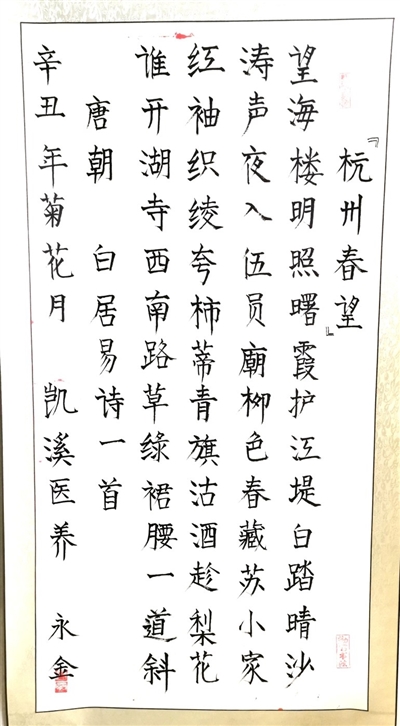 『杭州春望』
望海楼明照曙霞护江堤白踏晴沙
涛声夜入伍员廟柳色春藏苏小家
红袖织绫夸柿蒂青旗沽酒趁梨花
谁开湖寺西南路草绿裙腰一道斜
唐朝 白居易诗一首
辛丑年菊花月 凯溪医养 永金